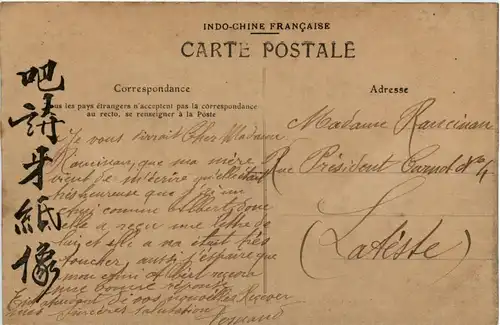 INDO-CHINE FRANÇAISE
CARTE POSTALE
Correspondance
us les pays étrangers n'acceptent pas la correspondance
au recto, se renseigner à la Poste
吧請牙紙像
Je vous dirait Cher Madame
Rancinan, que ma mère
vient de m'desire qu'elle était
très heureuse que j'ai un
ami comme Albert, donc
elle a reçu une lettre de
lui, et elle a était très
toucher, aussi j'espère que
mon ami Albert
une bonne réponse
En attendant de vos nouvelles Recever
mes sincères salutation
Fernand
Adresse
Madame Rancinan
Rue Président Carnot No 4
(Lateste)